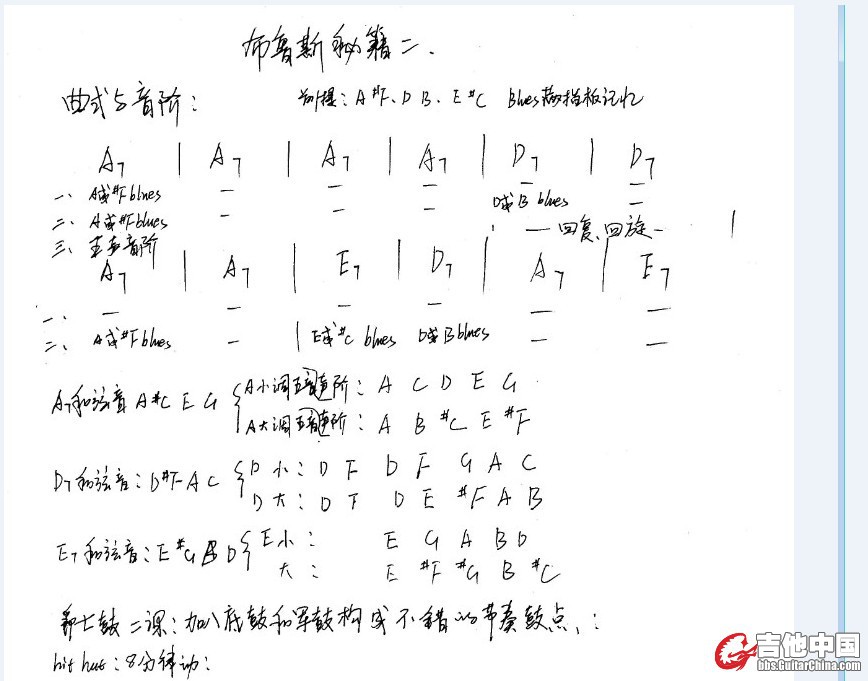 布鲁斯秘籍二、
曲式与音阶： 前提：A #F、D B、E #C Blues 指板记忆
A7 | A7 | A7 | A7 | D7 | D7
一、A或#F blues — — — D或B blues —
二、A或#F blues — — — — 回复、回旋— |
三、音阶
A7 | A7 | E7 | D7 | A7 | E7
一、— — — — — —
二、A或#F blues — | E或#C blues D或B blues — —
A7和弦音 A #C E G { A小调五音音阶：A C D E G
A大调五音音阶：A B #C E #F
D7和弦音：D #F A C { D 小：D F D F G A C
D 大：D F D E #F A B
E7和弦音：E #G B D { E小： E G A B D
大： E #F #G B #C
爵士鼓二课：加入底鼓和军鼓构成不错的节奏鼓点、：
hit hut：8分律动：
吉他中国
bbs.GuitarChina.com